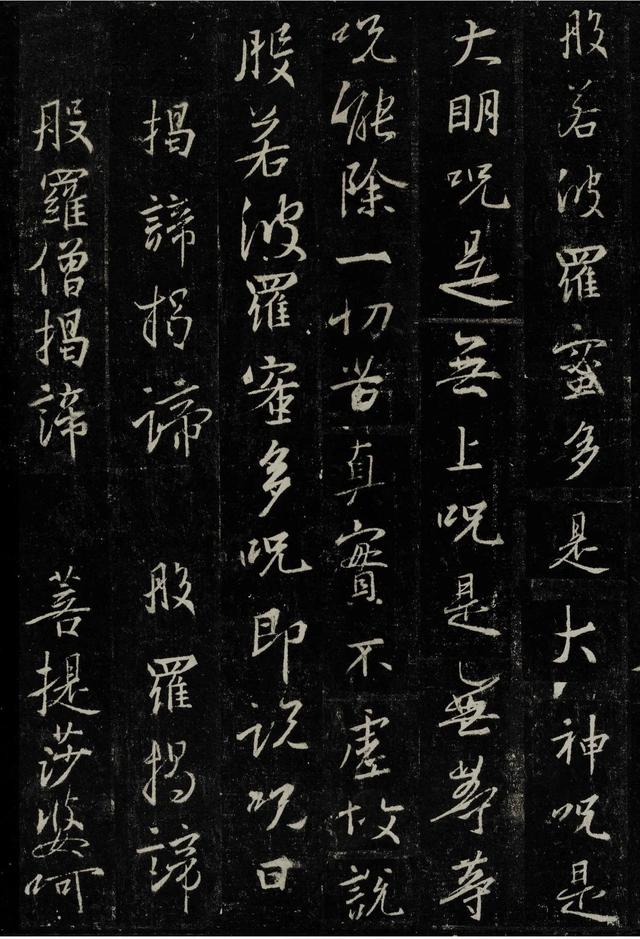 般若波羅蜜多是大神咒是
大明咒是無上咒是無等等
咒能除一切苦真實不虛故說
般若波羅蜜多咒即說咒曰
揭諦揭諦 般羅揭諦
般羅僧揭諦 菩提莎婆呵